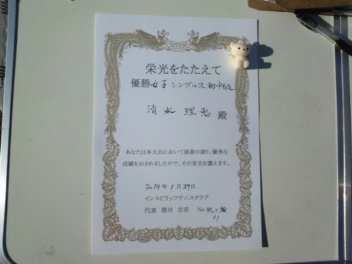 栄光をたたえて
優勝 女子 シングルス 初中級
清水 理恵 殿
あなたは本大会において頭書の通り、優秀な
成績をおさめましたので、その栄光を讃えます。
2014年1月29日
インスピリッツテニスクラブ
代表